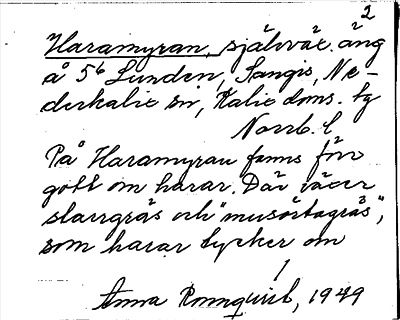 2
Haramyran, självväx. äng
å 5⁶ Lunden, Sangis, Ne-
derkalix sn, Kalix doms. tg
Norrb. l
På Haramyran finns förr
gott om harar. Där växer
starrgräs och "musörtagräs",
som harar tycker om
Anna Rönnqvist, 1949